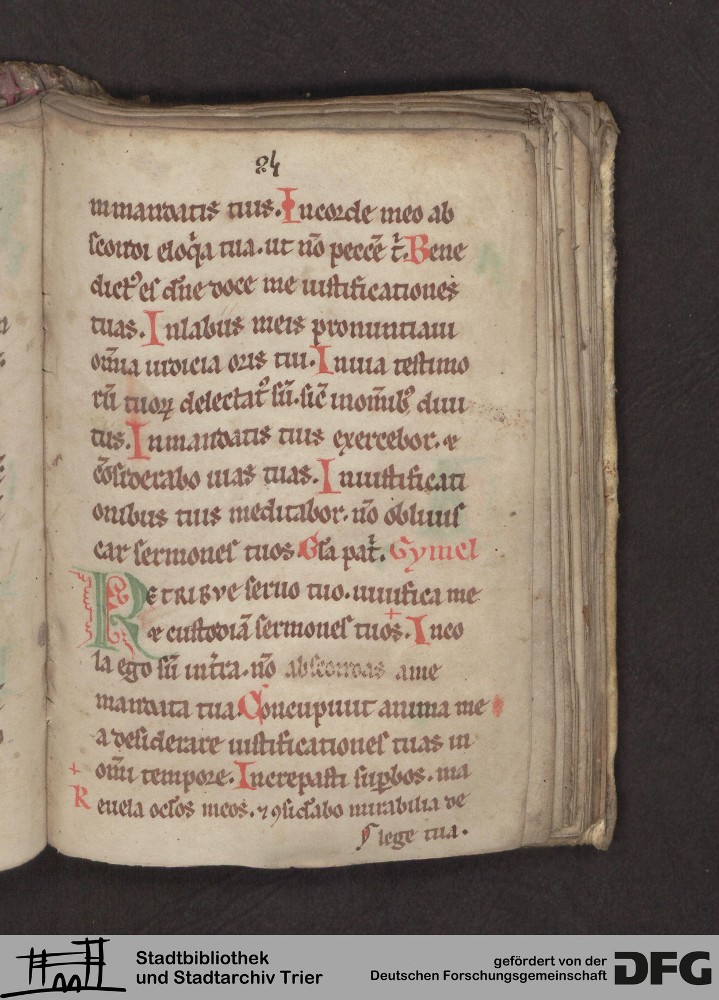 24
inmandatis tuis. Incorde meo ab
scondi eloq̇a tua. ut nō peccē t̓. Bene
dict᷒ es dn̄e doce me iustificationes
tuas. Inlabiis meis pronuntiaui
om̄ia iudicia oris tui. Inuia testimo
rū tuoꝝ delectat᷒ sū. sic̄ inom̄ib᷒ diui
tiis. Inmandatis tuis exercebor. ⁊
cōsiderabo uias tuas. Iniustificati
onibus tuis meditabor. nō obliuis
car sermones tuos. Gl̄a pat̓. Gymel
RETRIBVE seruo tuo. uiuifica me
⁊ custodiā sermones tuos. + Inco
la ego sū int̓ra. nō abscondas ame
mandata tua. Concupiuit anima me
a desiderare iustificationes tuas in
+ om̄i tempore. Increpasti sup̱bos. ma
R euela ocl̄os meos. ⁊ ꝯsid̓abo mirabilia de
lege tua.
Stadtbibliothek
und Stadtarchiv Trier
gefördert von der
Deutschen Forschungsgemeinschaft
DFG